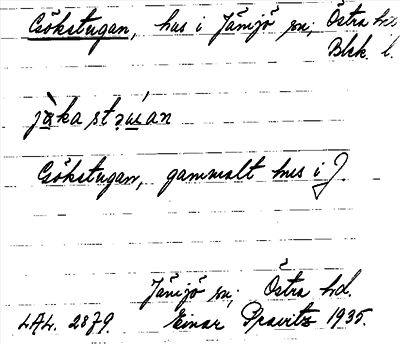 Csökstugan, hus i Jämjö sn, Östra hd,
Blek. l.
jàka stu̱an
Csökstugan, gammalt hus i J.
Jämjö sn, Östra hd.
LAL. 2879. Einar Pravitz 1935.